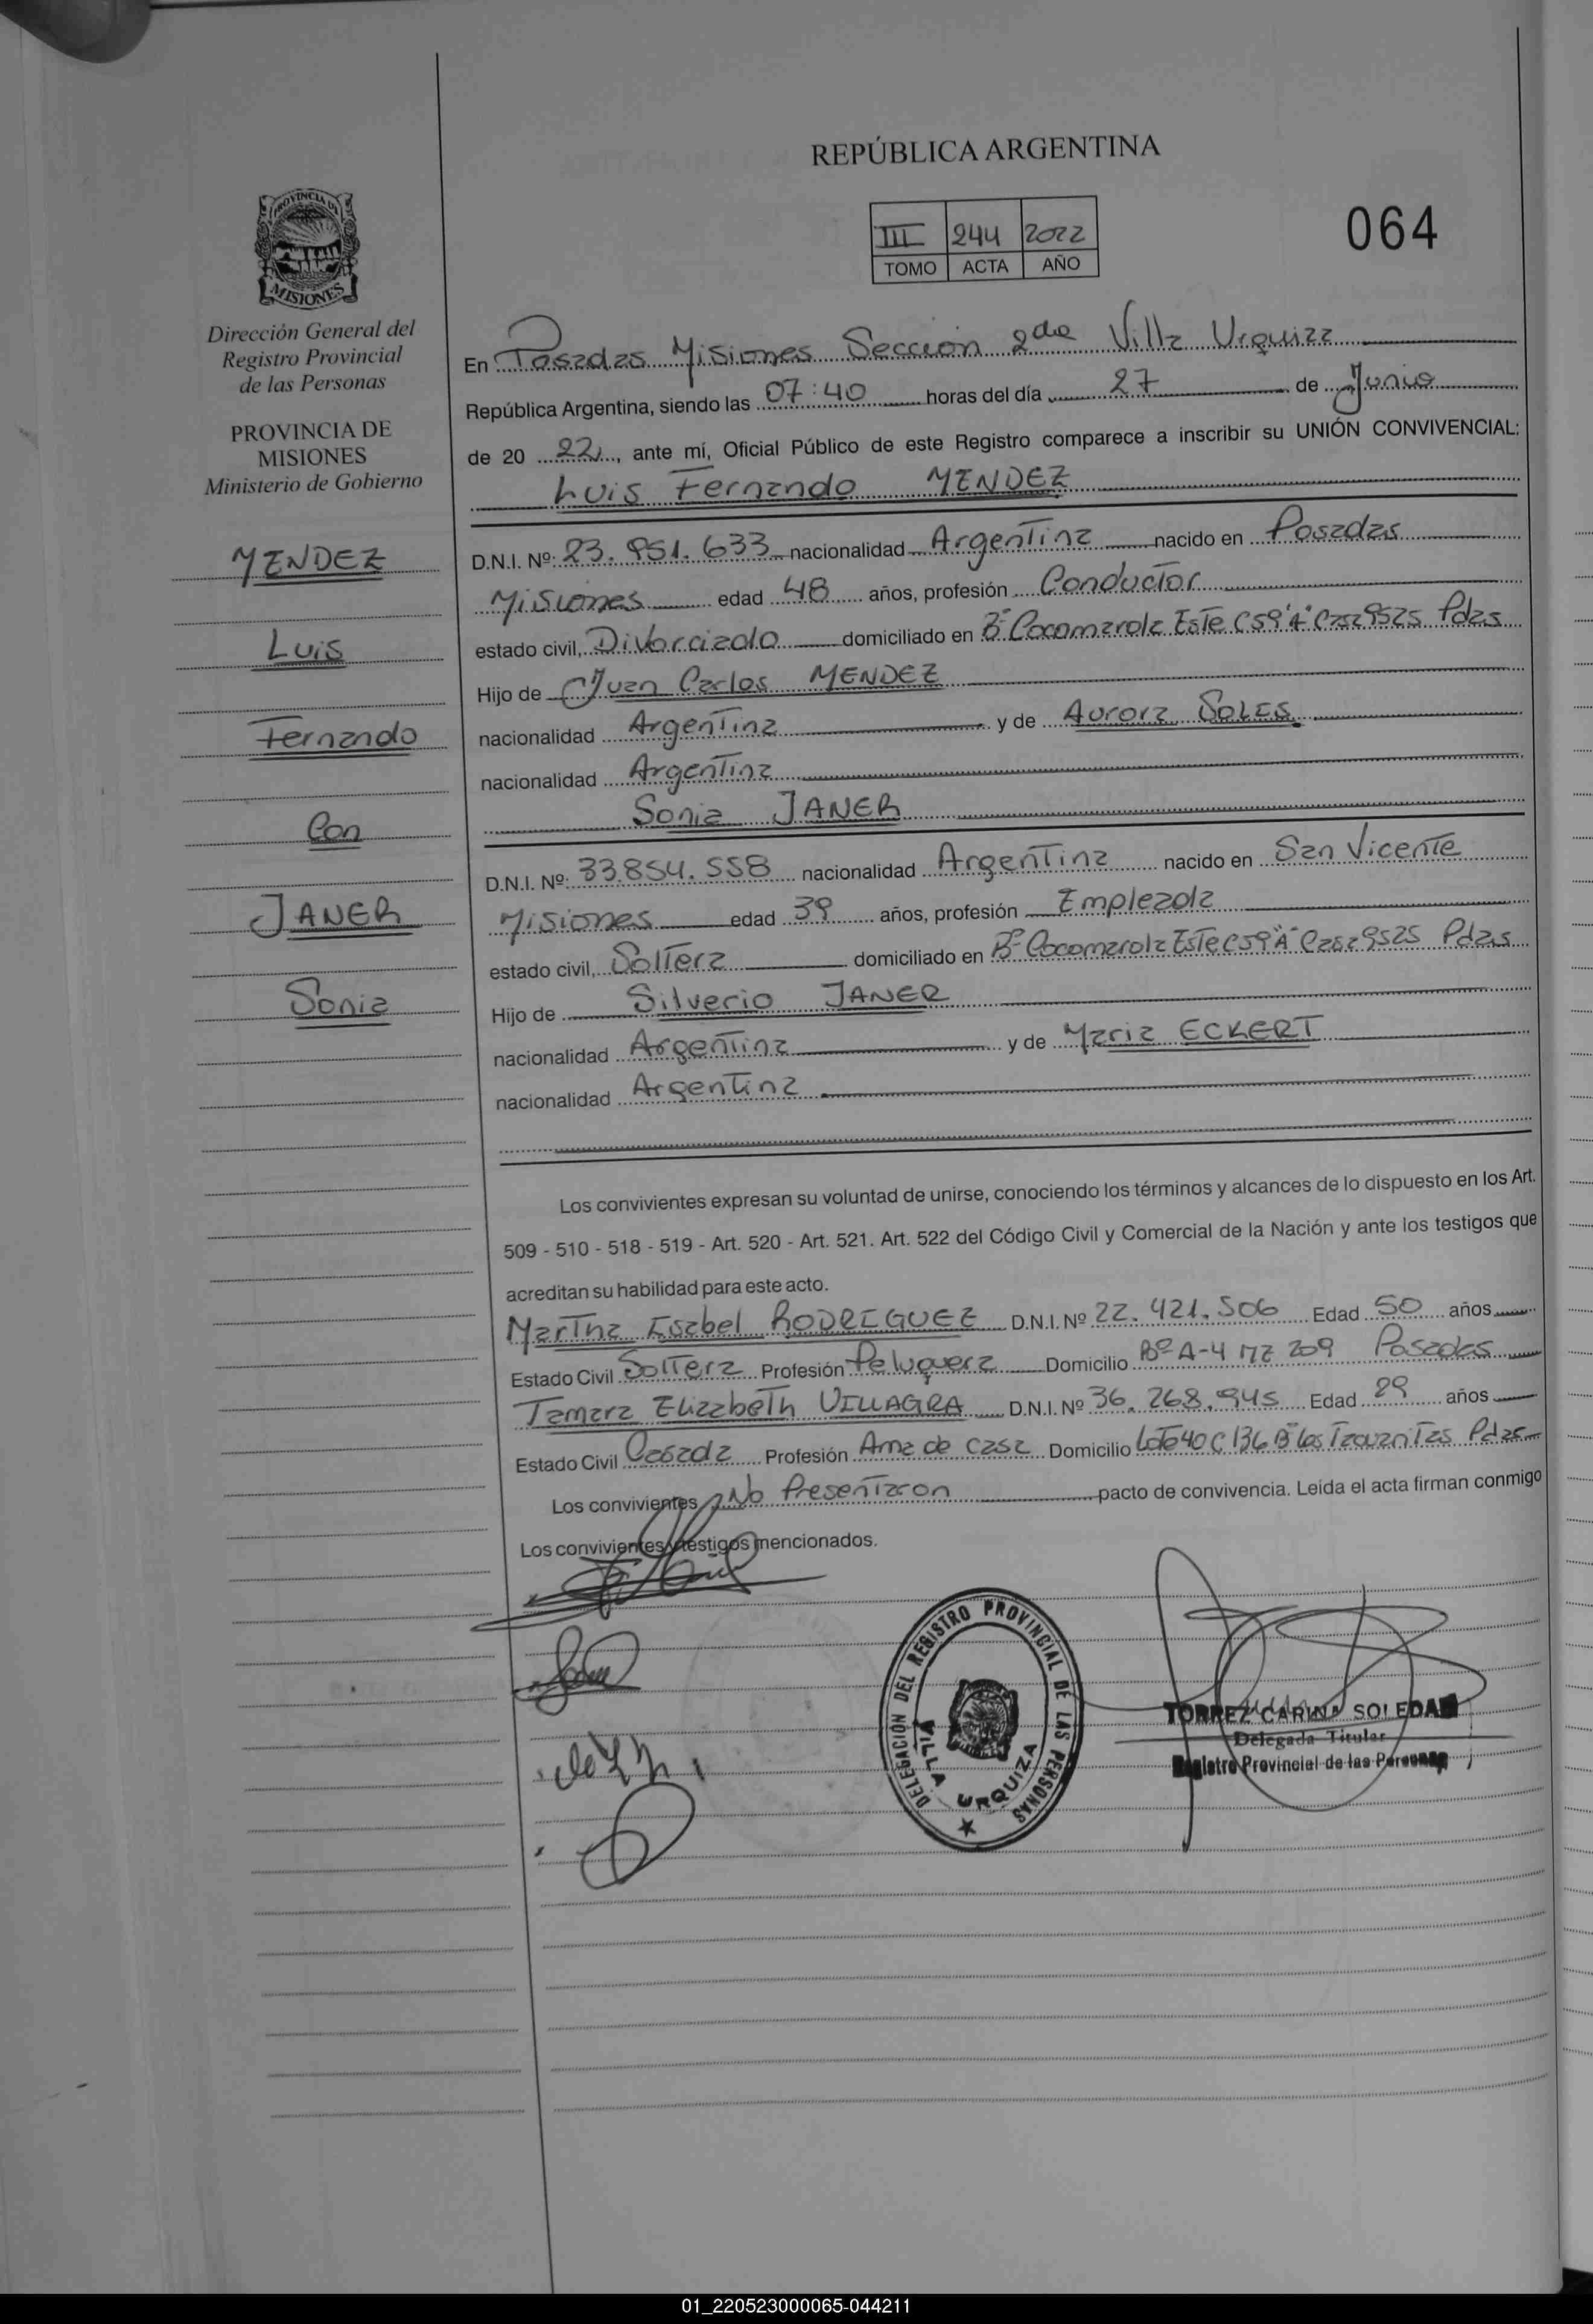 REPÚBLICA ARGENTINA
III 244 2022
TOMO ACTA AÑO
064
PROVINCIA DE
MISIONES
Dirección General del
Registro Provincial
de las Personas
PROVINCIA DE
MISIONES
Ministerio de Gobierno
MENDEZ
Luis
Fernando
Con
JANER
Sonia
En Posadas Misiones Sección 2da Villa Urquiza
República Argentina, siendo las 07:40 horas del día 27 de Junio
de 20 22, ante mí, Oficial Público de este Registro comparece a inscribir su UNIÓN CONVIVENCIAL:
Luis Fernando MENDEZ
D.N.I. Nº: 23.951.633 nacionalidad Argentina nacido en Posadas
Misiones edad 48 años, profesión Conductor
estado civil, Divorciado domiciliado en Bº Cocomarola Este C59 "A" Casa 9525 Pdas
Hijo de Juan Carlos MENDEZ
nacionalidad Argentina y de Aurora SOLES
nacionalidad Argentina
Sonia JANER
D.N.I. Nº: 33.854.558 nacionalidad Argentina nacido en San Vicente
Misiones edad 39 años, profesión Empleada
estado civil, Soltera domiciliado en Bº Cocomarola Este C59 "A" Casa 9525 Pdas
Hijo de Silverio JANER
nacionalidad Argentina y de Maria ECKERT
nacionalidad Argentina
Los convivientes expresan su voluntad de unirse, conociendo los términos y alcances de lo dispuesto en los Art.
509 - 510 - 518 - 519 - Art. 520 - Art. 521. Art. 522 del Código Civil y Comercial de la Nación y ante los testigos que
acreditan su habilidad para este acto.
Martha Isabel RODRIGUEZ D.N.I. Nº 22.421.506 Edad 50 años
Estado Civil Soltera Profesión Peluquera Domicilio Bº A-4 MZ 209 Posadas
Tamara Elizabeth VILLAGRA D.N.I. Nº 36.268.945 Edad 29 años
Estado Civil Casada Profesión Ama de casa Domicilio Lote 40 C 136 Bº Las Tacuaritas Pdas
Los convivientes No Presentaron pacto de convivencia. Leída el acta firman conmigo
Los convivientes y testigos mencionados.
DELEGACIÓN DEL REGISTRO PROVINCIAL DE LAS PERSONAS
VILLA URQUIZA
TORREZ CARINA SOLEDAD
Delegada Titular
Registro Provincial de las Personas
01_220523000065-044211